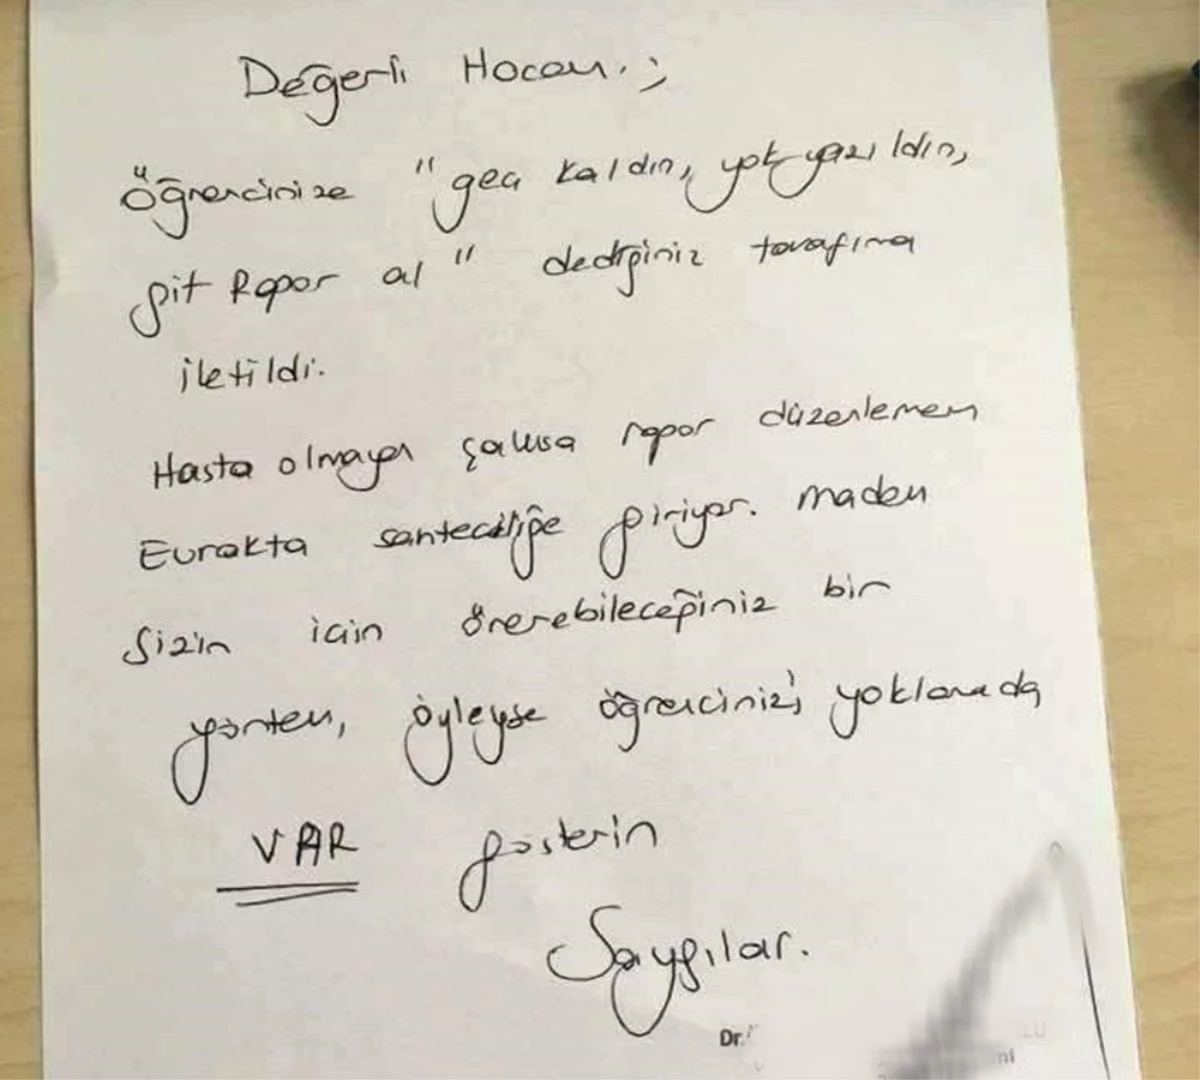 Değerli Hocam;
Öğrencinize "geç kaldın, yok yazıldın,
git Rapor al" dediğiniz tarafıma
iletildi.
Hasta olmayan şahısa rapor düzenlemem
Evrakta sahteciliğe giriyor. madem
Sizin için önerebileceğiniz bir
yöntem, öyleyse öğrencinizi yoklamada
VAR gösterin
Saygılar.
Dr.